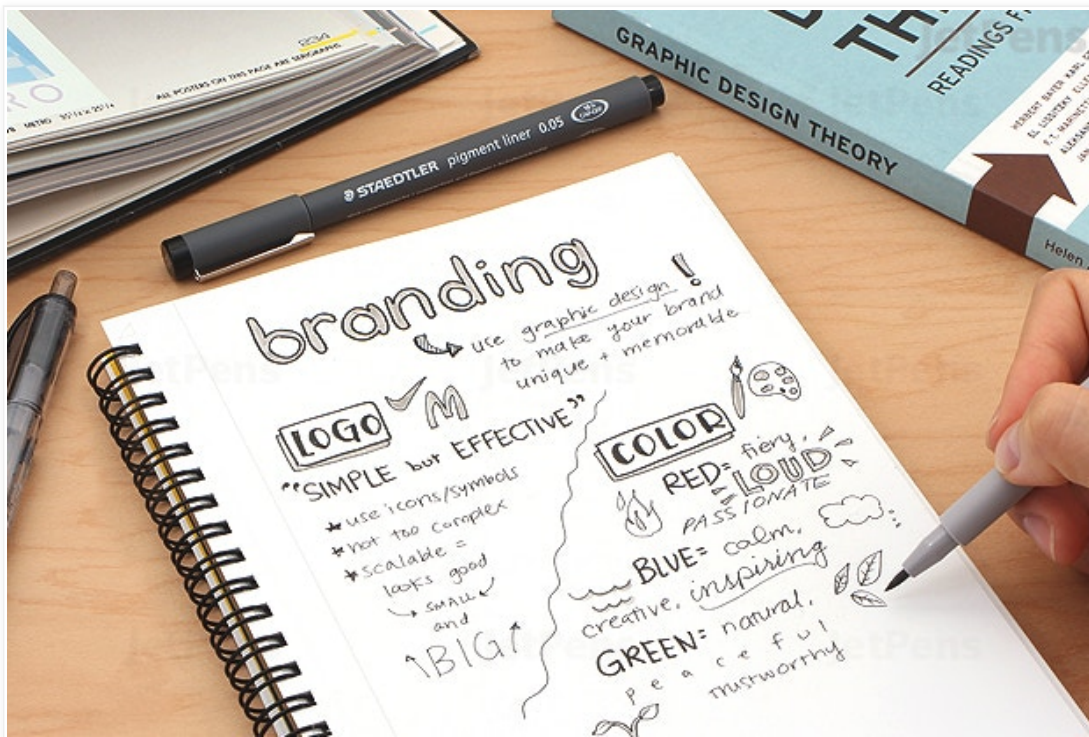 234
ALL POSTERS ON THIS PAGE ARE SERIGRAPHS
METRO 35¼ x 25¼
RO
STAEDTLER pigment liner 0.05
GRAPHIC DESIGN THEORY
READINGS
HERBERT BAYER KARL
EL LISSITZKY
F.T.
Helen
JetPens
branding
use graphic design!
to make your brand
unique + memorable
LOGO
✓ M
"SIMPLE but EFFECTIVE"
* use icons/symbols
* not too complex
* scalable =
looks good
SMALL
and
BIG
COLOR
RED = fiery,
LOUD
PASSIONATE
BLUE = calm,
creative, inspiring
GREEN = natural,
peaceful
trustworthy